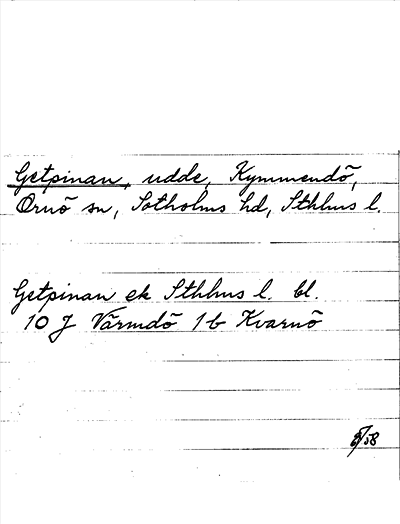 Getpinan, udde, Kymmendö,
Ornö sn, Sotholms hd, Sthlms l.
Getpinan ek Sthlms l. bl.
10 J Värmdö 1b Kvarnö